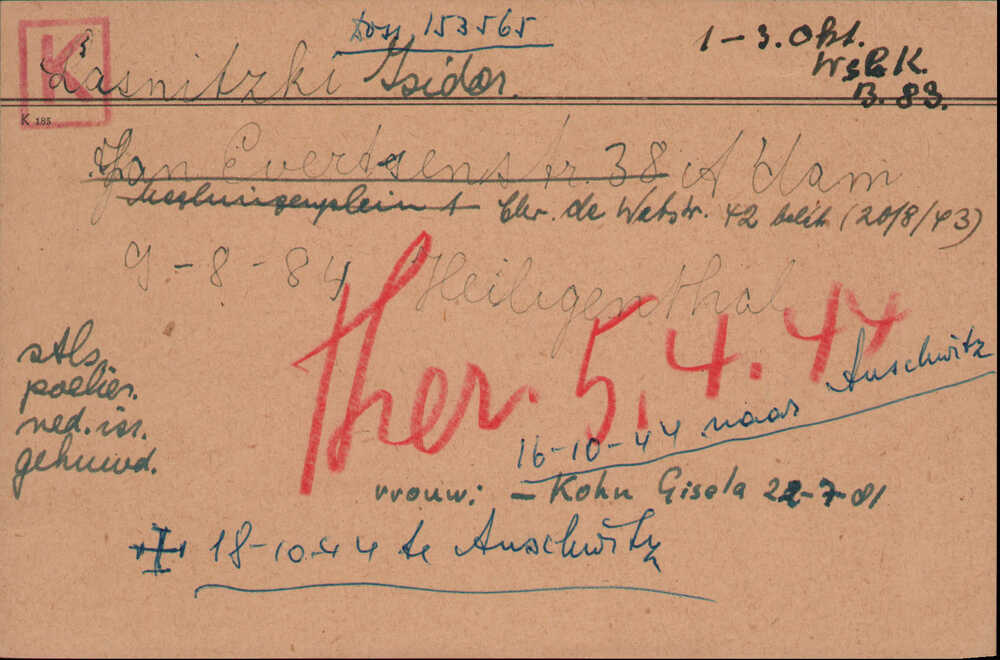 Doss. 153565
1-3. Okt.
WstbK.
B. 83.
K
Lasnitzki Isidor.
K 185
Jan Evertsenstr. 38 A'dam
Chr. de Wetstr. 42 belit (20/8/43)
9-8-84 Heiligenthal
stls.
poelier.
ned. isr.
gehuwd.
ther. 5.4.44
16-10-44 naar Auschwitz
vrouw: - Kohn Gisela 22-7-81
18-10-44 te Auschwitz